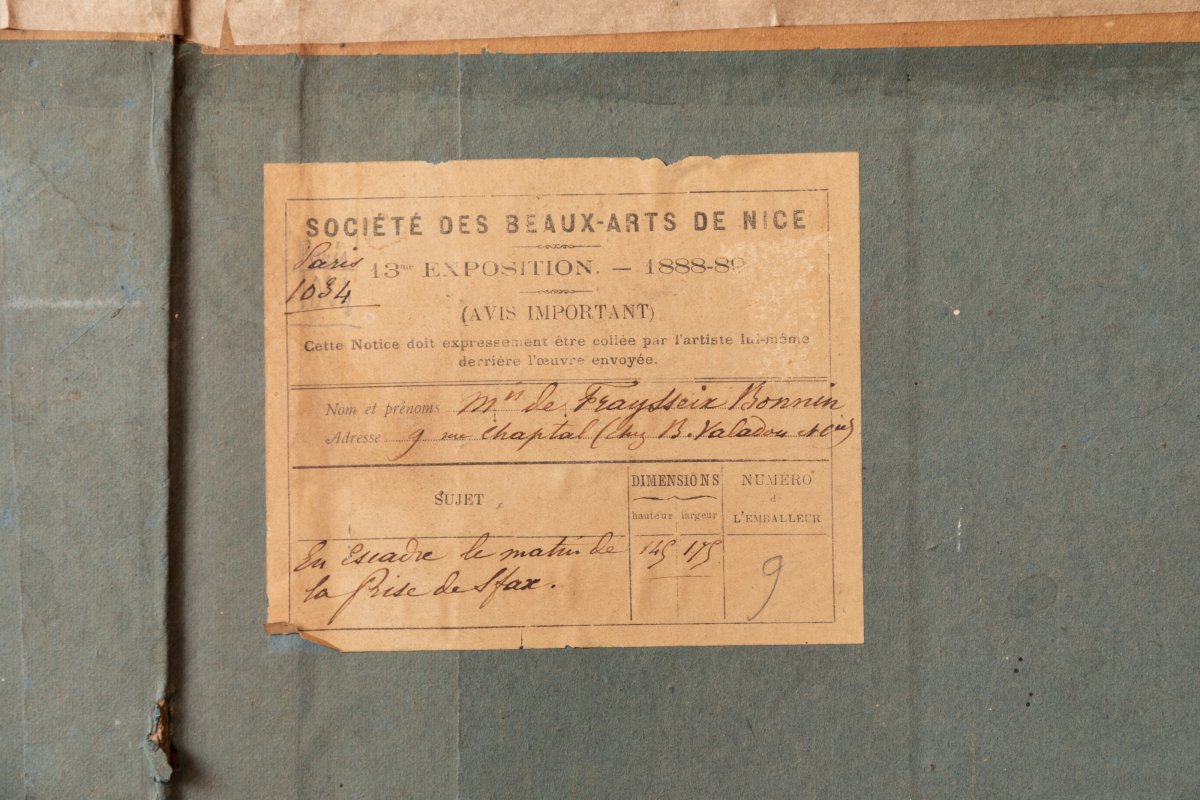 SOCIÉTÉ DES BEAUX-ARTS DE NICE
Paris
1034
13me EXPOSITION. — 1888-89
(AVIS IMPORTANT)
Cette Notice doit expressément être collée par l'artiste lui-même
derrière l'œuvre envoyée.
Nom et prénoms Mis de Fraysseix Bonnin
Adresse 9 rue Chaptal (chez B. Valadou
SUJET
DIMENSIONS
hauteur largeur
NUMÉRO
de
L'EMBALLEUR
En Escadre le matin de
la Prise de Sfax.
145 175
9